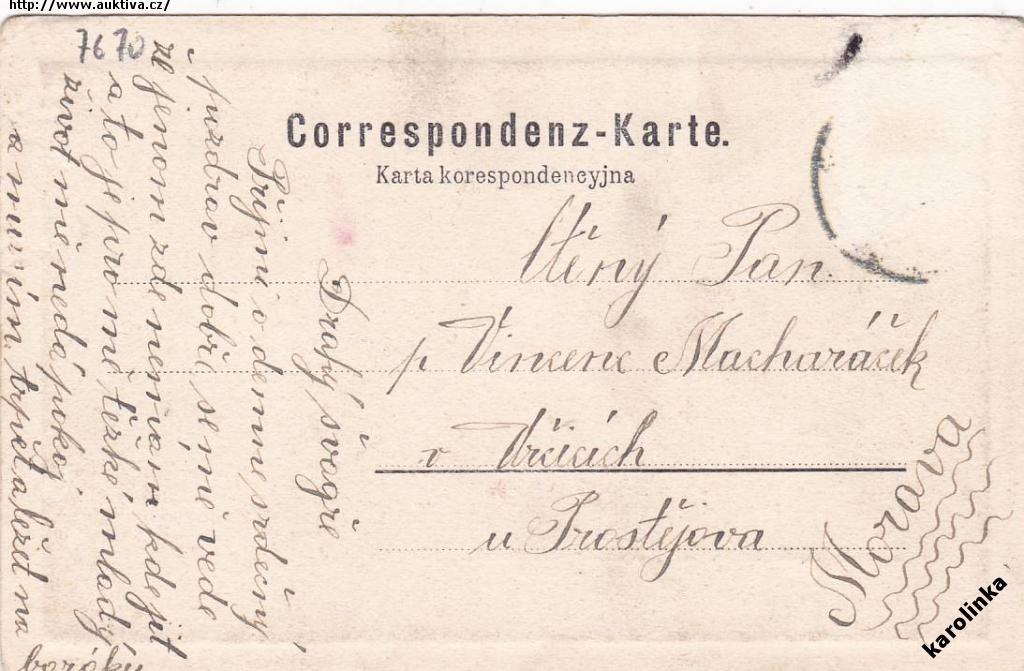 http://www.auktiva.cz/
7670
Correspondenz-Karte.
Karta korespondencyjna
Ctěný Pan.
p Vincenc Macharáček
v Určicích
u Prostějova
Morava
Drahý švagře
Přijmi odemne srdečný
pozdrav dobře se mě vede
jenom zde nemam kde jit
a to je pro mě těžké mlady
život mě nedá pokoj
a musím trpet a ležet na
karolinka